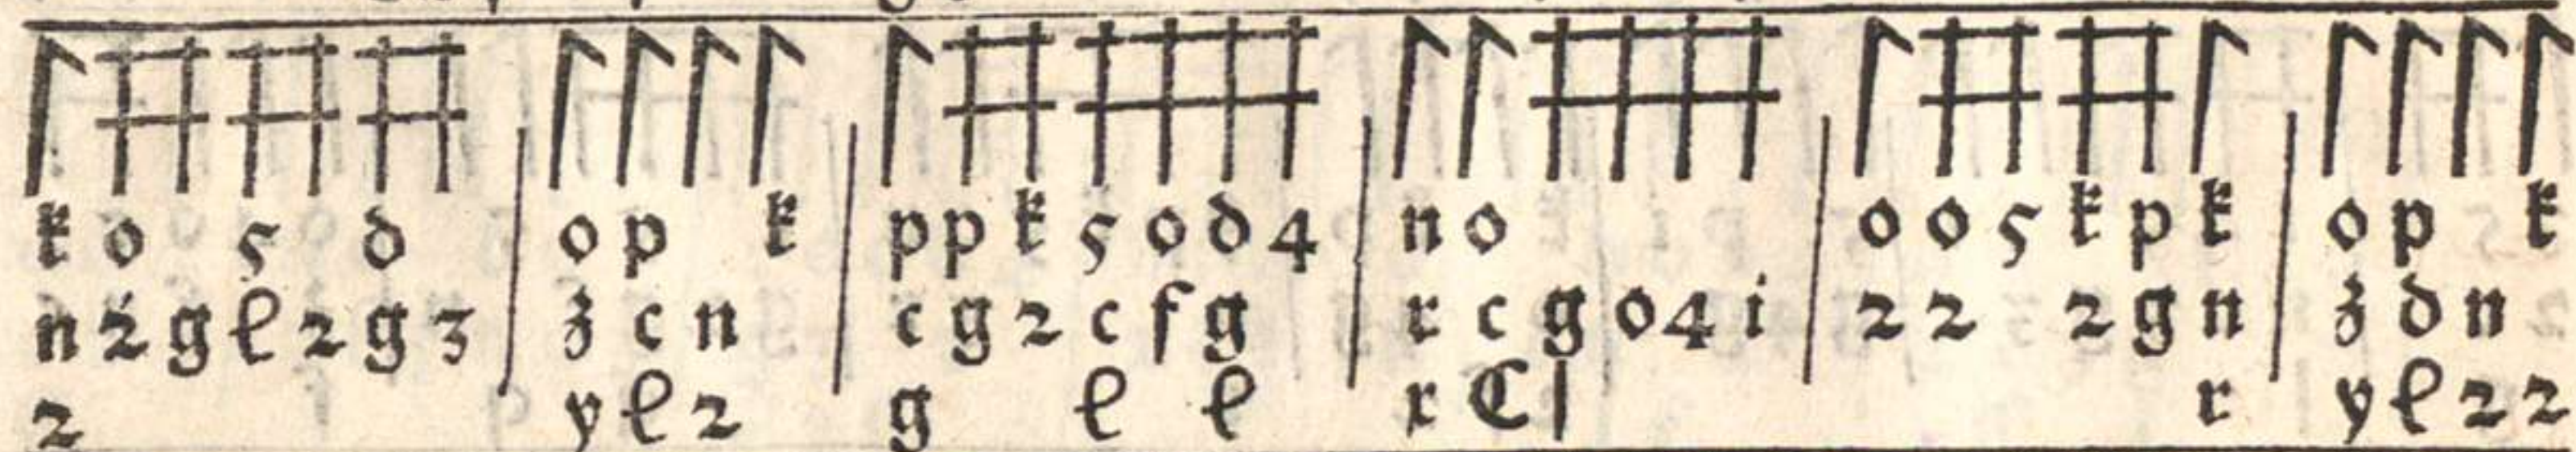 k o 5 d | o p k | p p k 5 o d 4 | n o | o o 5 k p k | o p k
n 2 g l 2 g 3 | z c n | c g 2 c f g | r c g o 4 i | 2 2 2 g n | z d n
2 | y l 2 | g l l | r C | | r | y l 2 2